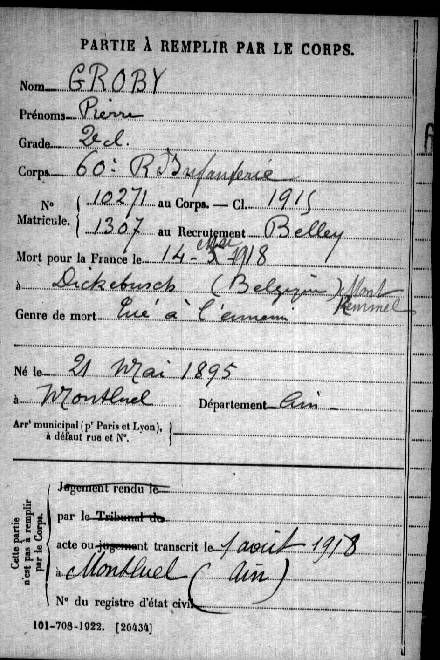 PARTIE À REMPLIR PAR LE CORPS.
Nom GROBY
Prénoms Pierre
Grade 2e cl.
Corps 60e R Infanterie
N° Matricule. { 10271 au Corps. — Cl. 1915
1307 au Recrutement Belley
Mai
Mort pour la France le 14 - 5 - 1918
à Dickebusch (Belgique) Mont Kemmel
Genre de mort Tué à l'ennemi
Né le 21 Mai 1895
à Montluel Département Ain
Arrt municipal (pr Paris et Lyon), à défaut rue et N°.
Cette partie n'est pas à remplir par le Corps.
Jugement rendu le
par le Tribunal de
acte ou jugement transcrit le 1 août 1918
à Montluel (Ain)
N° du registre d'état civil
101-708-1922. [26434]